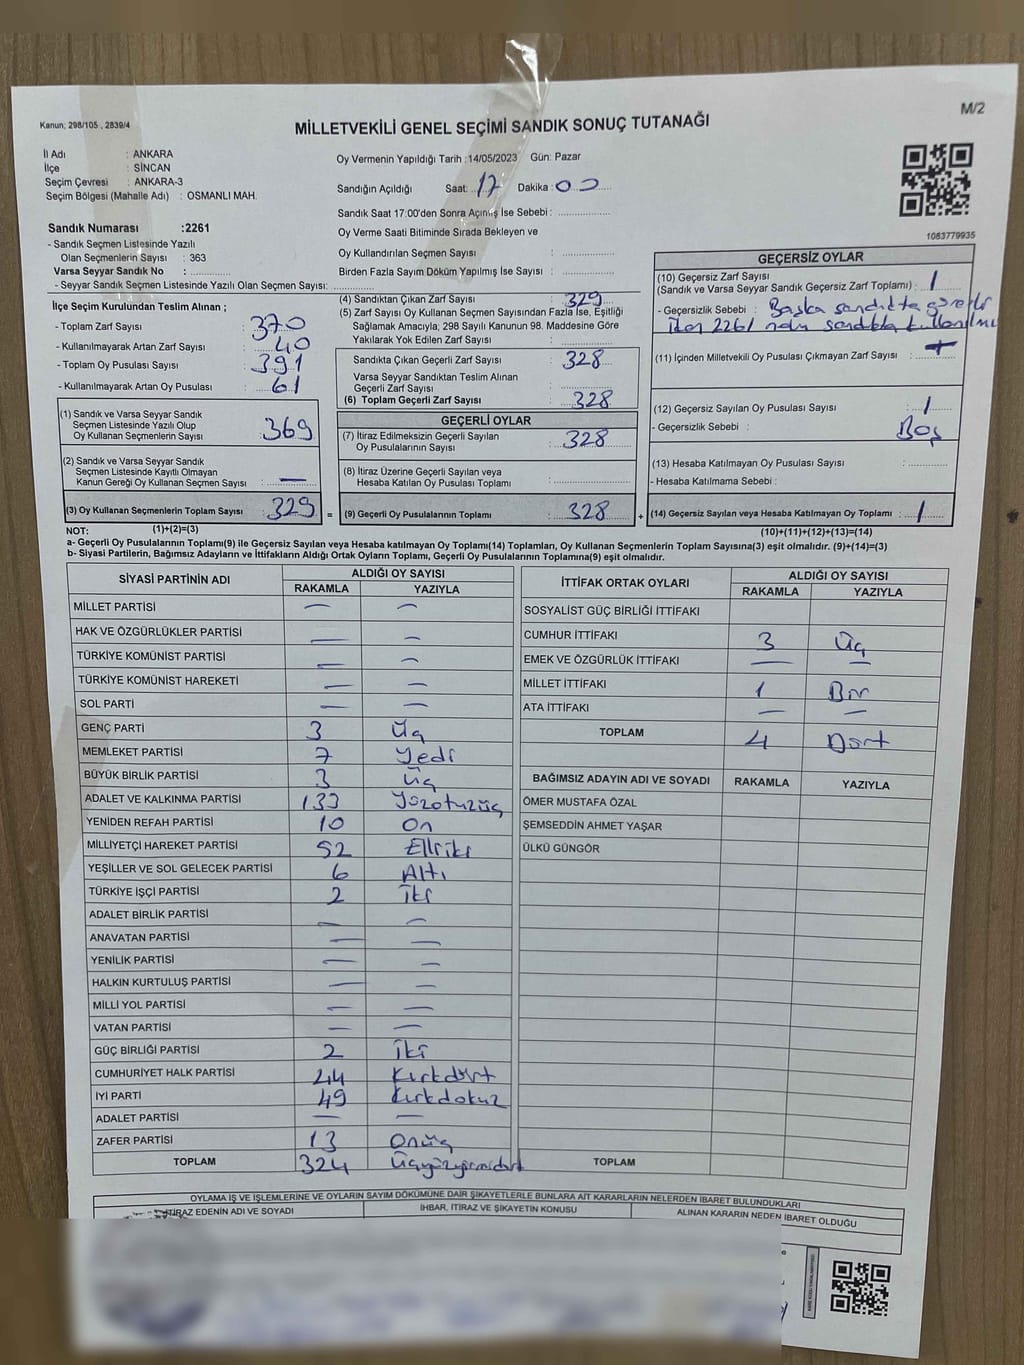 Kanun; 298/105 , 2839/4
M/2
MİLLETVEKİLİ GENEL SEÇİMİ SANDIK SONUÇ TUTANAĞI
İl Adı : ANKARA
İlçe : SİNCAN
Seçim Çevresi : ANKARA-3
Seçim Bölgesi (Mahalle Adı) : OSMANLI MAH.
Sandık Numarası :2261
- Sandık Seçmen Listesinde Yazılı
Olan Seçmenlerin Sayısı : 363
Varsa Seyyar Sandık No : ..............
- Seyyar Sandık Seçmen Listesinde Yazılı Olan Seçmen Sayısı: ..............
Oy Vermenin Yapıldığı Tarih :14/05/2023 Gün: Pazar
Sandığın Açıldığı Saat: 17 Dakika : 00
Sandık Saat 17:00'den Sonra Açılmış İse Sebebi : ..............
Oy Verme Saati Bitiminde Sırada Bekleyen ve
Oy Kullandırılan Seçmen Sayısı : ..............
Birden Fazla Sayım Döküm Yapılmış İse Sayısı : ..............
1083779935
İlçe Seçim Kurulundan Teslim Alınan ;
- Toplam Zarf Sayısı : 370
- Kullanılmayarak Artan Zarf Sayısı : 40
- Toplam Oy Pusulası Sayısı : 391
- Kullanılmayarak Artan Oy Pusulası : 61
(1) Sandık ve Varsa Seyyar Sandık
Seçmen Listesinde Yazılı Olup
Oy Kullanan Seçmenlerin Sayısı : 369
(2) Sandık ve Varsa Seyyar Sandık
Seçmen Listesinde Kayıtlı Olmayan
Kanun Gereği Oy Kullanan Seçmen Sayısı : —
(3) Oy Kullanan Seçmenlerin Toplam Sayısı : 329 =
(4) Sandıktan Çıkan Zarf Sayısı : 329
(5) Zarf Sayısı Oy Kullanan Seçmen Sayısından Fazla İse, Eşitliği
Sağlamak Amacıyla; 298 Sayılı Kanunun 98. Maddesine Göre
Yakılarak Yok Edilen Zarf Sayısı : ..............
Sandıkta Çıkan Geçerli Zarf Sayısı : 328
Varsa Seyyar Sandıktan Teslim Alınan
Geçerli Zarf Sayısı : ..............
(6) Toplam Geçerli Zarf Sayısı : 328
GEÇERLİ OYLAR
(7) İtiraz Edilmeksizin Geçerli Sayılan
Oy Pusulalarının Sayısı : 328
(8) İtiraz Üzerine Geçerli Sayılan veya
Hesaba Katılan Oy Pusulası Toplamı : ..............
(9) Geçerli Oy Pusulalarının Toplamı : 328 +
GEÇERSİZ OYLAR
(10) Geçersiz Zarf Sayısı
(Sandık ve Varsa Seyyar Sandık Geçersiz Zarf Toplamı) : 1
- Geçersizlik Sebebi : Başka sandıkta görevli
2261 nolu sandıkta
(11) İçinden Milletvekili Oy Pusulası Çıkmayan Zarf Sayısı :
(12) Geçersiz Sayılan Oy Pusulası Sayısı : 1
- Geçersizlik Sebebi : Boş
(13) Hesaba Katılmayan Oy Pusulası Sayısı : ..............
- Hesaba Katılmama Sebebi :
(14) Geçersiz Sayılan veya Hesaba Katılmayan Oy Toplamı : 1
NOT: (1)+(2)=(3) (10)+(11)+(12)+(13)=(14)
a- Geçerli Oy Pusulalarının Toplamı(9) ile Geçersiz Sayılan veya Hesaba katılmayan Oy Toplamı(14) Toplamları, Oy Kullanan Seçmenlerin Toplam Sayısına(3) eşit olmalıdır. (9)+(14)=(3)
b- Siyasi Partilerin, Bağımsız Adayların ve İttifakların Aldığı Ortak Oyların Toplamı, Geçerli Oy Pusulalarının Toplamına(9) eşit olmalıdır.
SİYASİ PARTİNİN ADI ALDIĞI OY SAYISI
RAKAMLA YAZIYLA
MİLLET PARTİSİ — —
HAK VE ÖZGÜRLÜKLER PARTİSİ — —
TÜRKİYE KOMÜNİST PARTİSİ — —
TÜRKİYE KOMÜNİST HAREKETİ — —
SOL PARTİ — —
GENÇ PARTİ 3 Üç
MEMLEKET PARTİSİ 7 Yedi
BÜYÜK BİRLİK PARTİSİ 3 Üç
ADALET VE KALKINMA PARTİSİ 133 Yüzotuzüç
YENİDEN REFAH PARTİSİ 10 On
MİLLİYETÇİ HAREKET PARTİSİ 52 Elliiki
YEŞİLLER VE SOL GELECEK PARTİSİ 6 Altı
TÜRKİYE İŞÇİ PARTİSİ 2 İki
ADALET BİRLİK PARTİSİ — —
ANAVATAN PARTİSİ — —
YENİLİK PARTİSİ — —
HALKIN KURTULUŞ PARTİSİ — —
MİLLİ YOL PARTİSİ — —
VATAN PARTİSİ — —
GÜÇ BİRLİĞİ PARTİSİ 2 İki
CUMHURİYET HALK PARTİSİ 44 Kırkdört
İYİ PARTİ 49 Kırkdokuz
ADALET PARTİSİ — —
ZAFER PARTİSİ 13 Onüç
TOPLAM 324 Üçyüzyirmidört
İTTİFAK ORTAK OYLARI ALDIĞI OY SAYISI
RAKAMLA YAZIYLA
SOSYALİST GÜÇ BİRLİĞİ İTTİFAKI
CUMHUR İTTİFAKI 3 Üç
EMEK VE ÖZGÜRLÜK İTTİFAKI — —
MİLLET İTTİFAKI 1 Bir
ATA İTTİFAKI — —
TOPLAM 4 Dört
BAĞIMSIZ ADAYIN ADI VE SOYADI RAKAMLA YAZIYLA
ÖMER MUSTAFA ÖZAL
ŞEMSEDDİN AHMET YAŞAR
ÜLKÜ GÜNGÖR
TOPLAM
OYLAMA İŞ VE İŞLEMLERİNE VE OYLARIN SAYIM DÖKÜMÜNE DAİR ŞİKAYETLERLE BUNLARA AİT KARARLARIN NELERDEN İBARET BULUNDUKLARI
İTİRAZ EDENİN ADI VE SOYADI İHBAR, İTİRAZ VE ŞİKAYETİN KONUSU ALINAN KARARIN NEDEN İBARET OLDUĞU